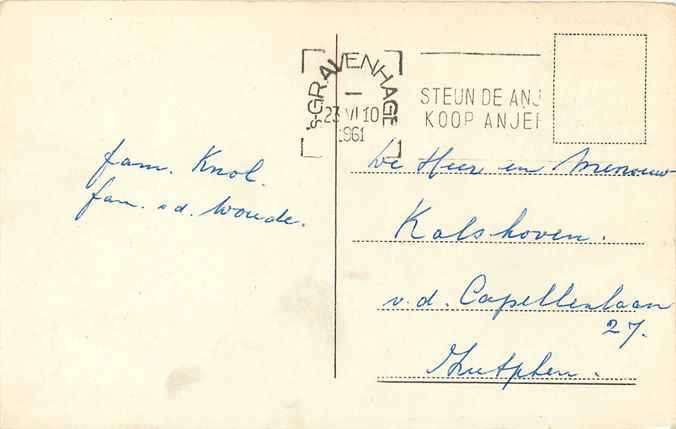 'S-GRAVENHAGE
23 VI 10
1961
STEUN DE ANJ
KOOP ANJER
fam. Knol.
fam. v.d. Woude.
De Heer en Mevrouw
Kalshoven.
v.d. Capellenlaan
27.
Zutphen.